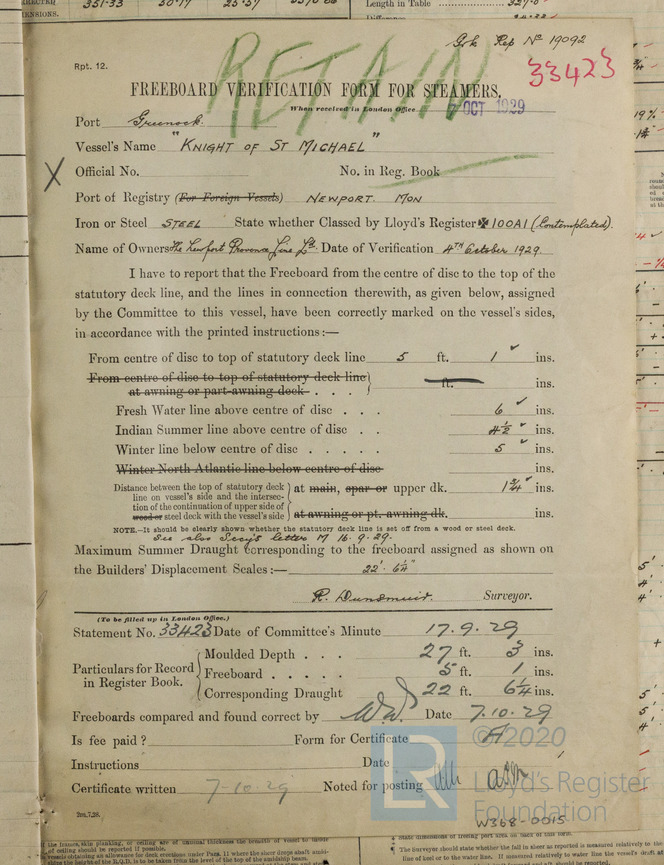 351.33
Length in Table
Grk Rep Nº 19092
Rpt. 12.
RETAIN
33423
FREEBOARD VERIFICATION FORM FOR STEAMERS.
When received in London Office 7 OCT 1929
Port Greenock
Vessel's Name "KNIGHT OF ST MICHAEL"
X Official No. No. in Reg. Book
Port of Registry (For Foreign Vessels) NEWPORT. MON
Iron or Steel STEEL State whether Classed by Lloyd's Register ✠ 100A1 (Contemplated).
Name of Owners The Newport Provence Line Ld. Date of Verification 4TH October 1929.
I have to report that the Freeboard from the centre of disc to the top of the
statutory deck line, and the lines in connection therewith, as given below, assigned
by the Committee to this vessel, have been correctly marked on the vessel's sides,
in accordance with the printed instructions:—
From centre of disc to top of statutory deck line 5 ft. 1 ✓ ins.
From centre of disc to top of statutory deck line
at awning or part-awning deck . . . ft. ins.
Fresh Water line above centre of disc . . . 6 ✓ ins.
Indian Summer line above centre of disc . . 4½ ✓ ins.
Winter line below centre of disc . . . . . 5 ✓ ins.
Winter North Atlantic line below centre of disc ins.
Distance between the top of statutory deck
line on vessel's side and the intersec-
tion of the continuation of upper side of
wood or steel deck with the vessel's side
at main, spar or upper dk. 1¾ ✓ ins.
at awning or pt. awning dk. ins.
NOTE.—It should be clearly shown whether the statutory deck line is set off from a wood or steel deck.
See also Secy's letter M 16.9.29.
Maximum Summer Draught corresponding to the freeboard assigned as shown on
the Builders' Displacement Scales:— 22' 6¼"
R. Dunsmuir. Surveyor.
(To be filled up in London Office.)
Statement No. 33423 Date of Committee's Minute 17.9.29
Particulars for Record
in Register Book.
Moulded Depth . . . 27 ft. 3 ins.
Freeboard . . . . . 5 ft. 1 ins.
Corresponding Draught 22 ft. 6¼ ins.
Freeboards compared and found correct by Date 7.10.29
Is fee paid? Form for Certificate A
Instructions Date
Certificate written 7-10-29 Noted for posting
© 2020
LR
Lloyd's Register
Foundation
W368-0015
The Surveyor should state whether the fall in sheer as reported is measured relatively to the